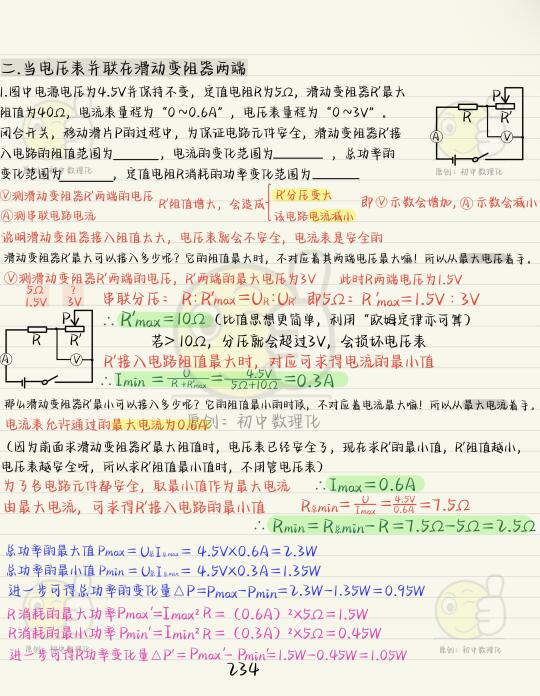 二.当电压表并联在滑动变阻器两端
1.图中电源电压为4.5V并保持不变，定值电阻R为5Ω，滑动变阻器R'最大
阻值为40Ω，电流表量程为“0～0.6A”，电压表量程为“0～3V”。
闭合开关，移动滑片P的过程中，为保证电路元件安全，滑动变阻器R'接
入电路的阻值范围为______，电流的变化范围为______，总功率的
变化范围为______，定值电阻R消耗的功率变化范围为______
P
R
R'
A
V
原创：初中数理化
Ⓥ测滑动变阻器R'两端的电压
Ⓐ测串联电路电流
R'阻值增大，会造成
R'分压变大
该电路电流减小
即Ⓥ示数会增加，Ⓐ示数会减小
说明滑动变阻器接入阻值太大，电压表就会不安全，电流表是安全的
滑动变阻器R'最大可以接入多少呢？它的阻值最大时，不对应着其两端电压最大嘛！所以从最大电压着手。
Ⓥ测滑动变阻器R'两端的电压，R'两端的最大电压为3V 此时R两端电压为1.5V
5Ω ?
1.5V 3V
串联分压：R:R'max=UR:UR' 即5Ω：R'max=1.5V：3V
∴R'max=10Ω（比值思想更简单，利用“欧姆定律亦可算）
若>10Ω，分压就会超过3V，会损坏电压表
P
R
R'
A
V
R'接入电路阻值最大时，对应可求得电流的最小值
∴Imin=U/(R+R'max)=4.5V/(5Ω+10Ω)=0.3A
那么滑动变阻器R'最小可以接入多少呢？它的阻值最小的时候，不对应着电流最大嘛！所以从最大电流着手。
电流表允许通过的最大电流为0.6A
原创：初中数理化
（因为前面求滑动变阻器R'最大阻值时，电压表已经安全了，现在求R'的最小值，R'阻值越小，
电压表越安全呀，所以求R'阻值最小值时，不用管电压表）
为了各电路元件都安全，取最小值作为最大电流 ∴Imax=0.6A
由最大电流，可求得R'接入电路的最小值 R总min=U/Imax=4.5V/0.6A=7.5Ω
∴Rmin=R总min-R=7.5Ω-5Ω=2.5Ω
总功率的最大值Pmax=U总I总max=4.5V×0.6A=2.3W
总功率的最小值Pmin=U总I总min=4.5V×0.3A=1.35W
进一步可得总功率的变化量△P=Pmax-Pmin=2.3W-1.35W=0.95W
R消耗的最大功率Pmax'=Imax²R=（0.6A）²×5Ω=1.5W
R消耗的最小功率Pmin'=Imin²R=（0.3A）²×5Ω=0.45W
进一步可得R功率变化量△P'=Pmax'-Pmin'=1.5W-0.45W=1.05W
原创：初中数理化
原创：初中数理化
234